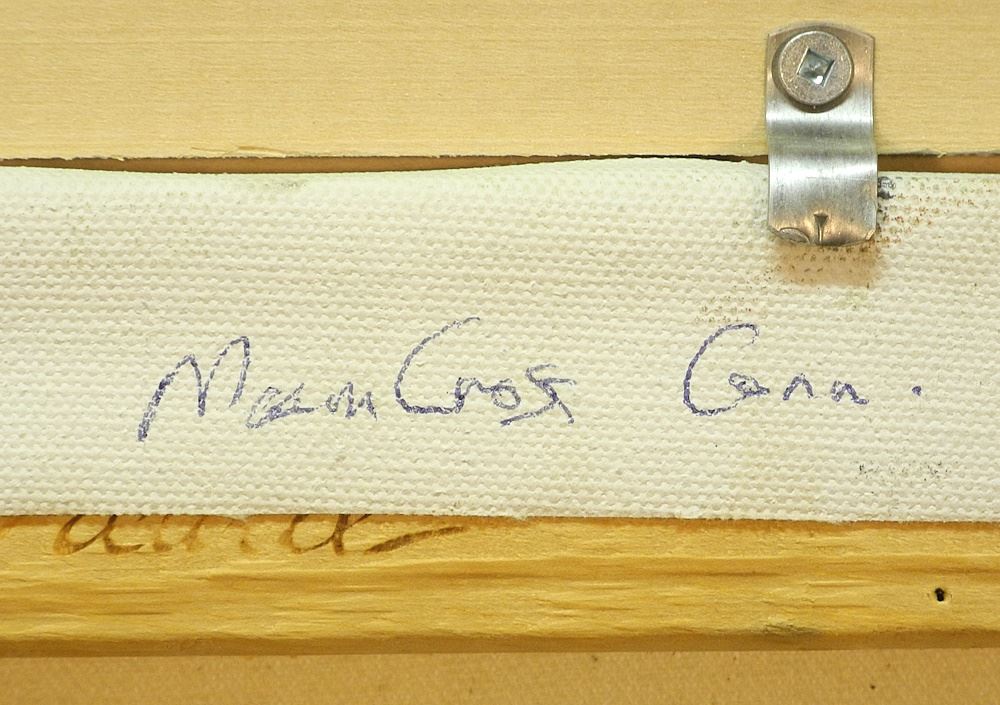 Maam Cross Conn.